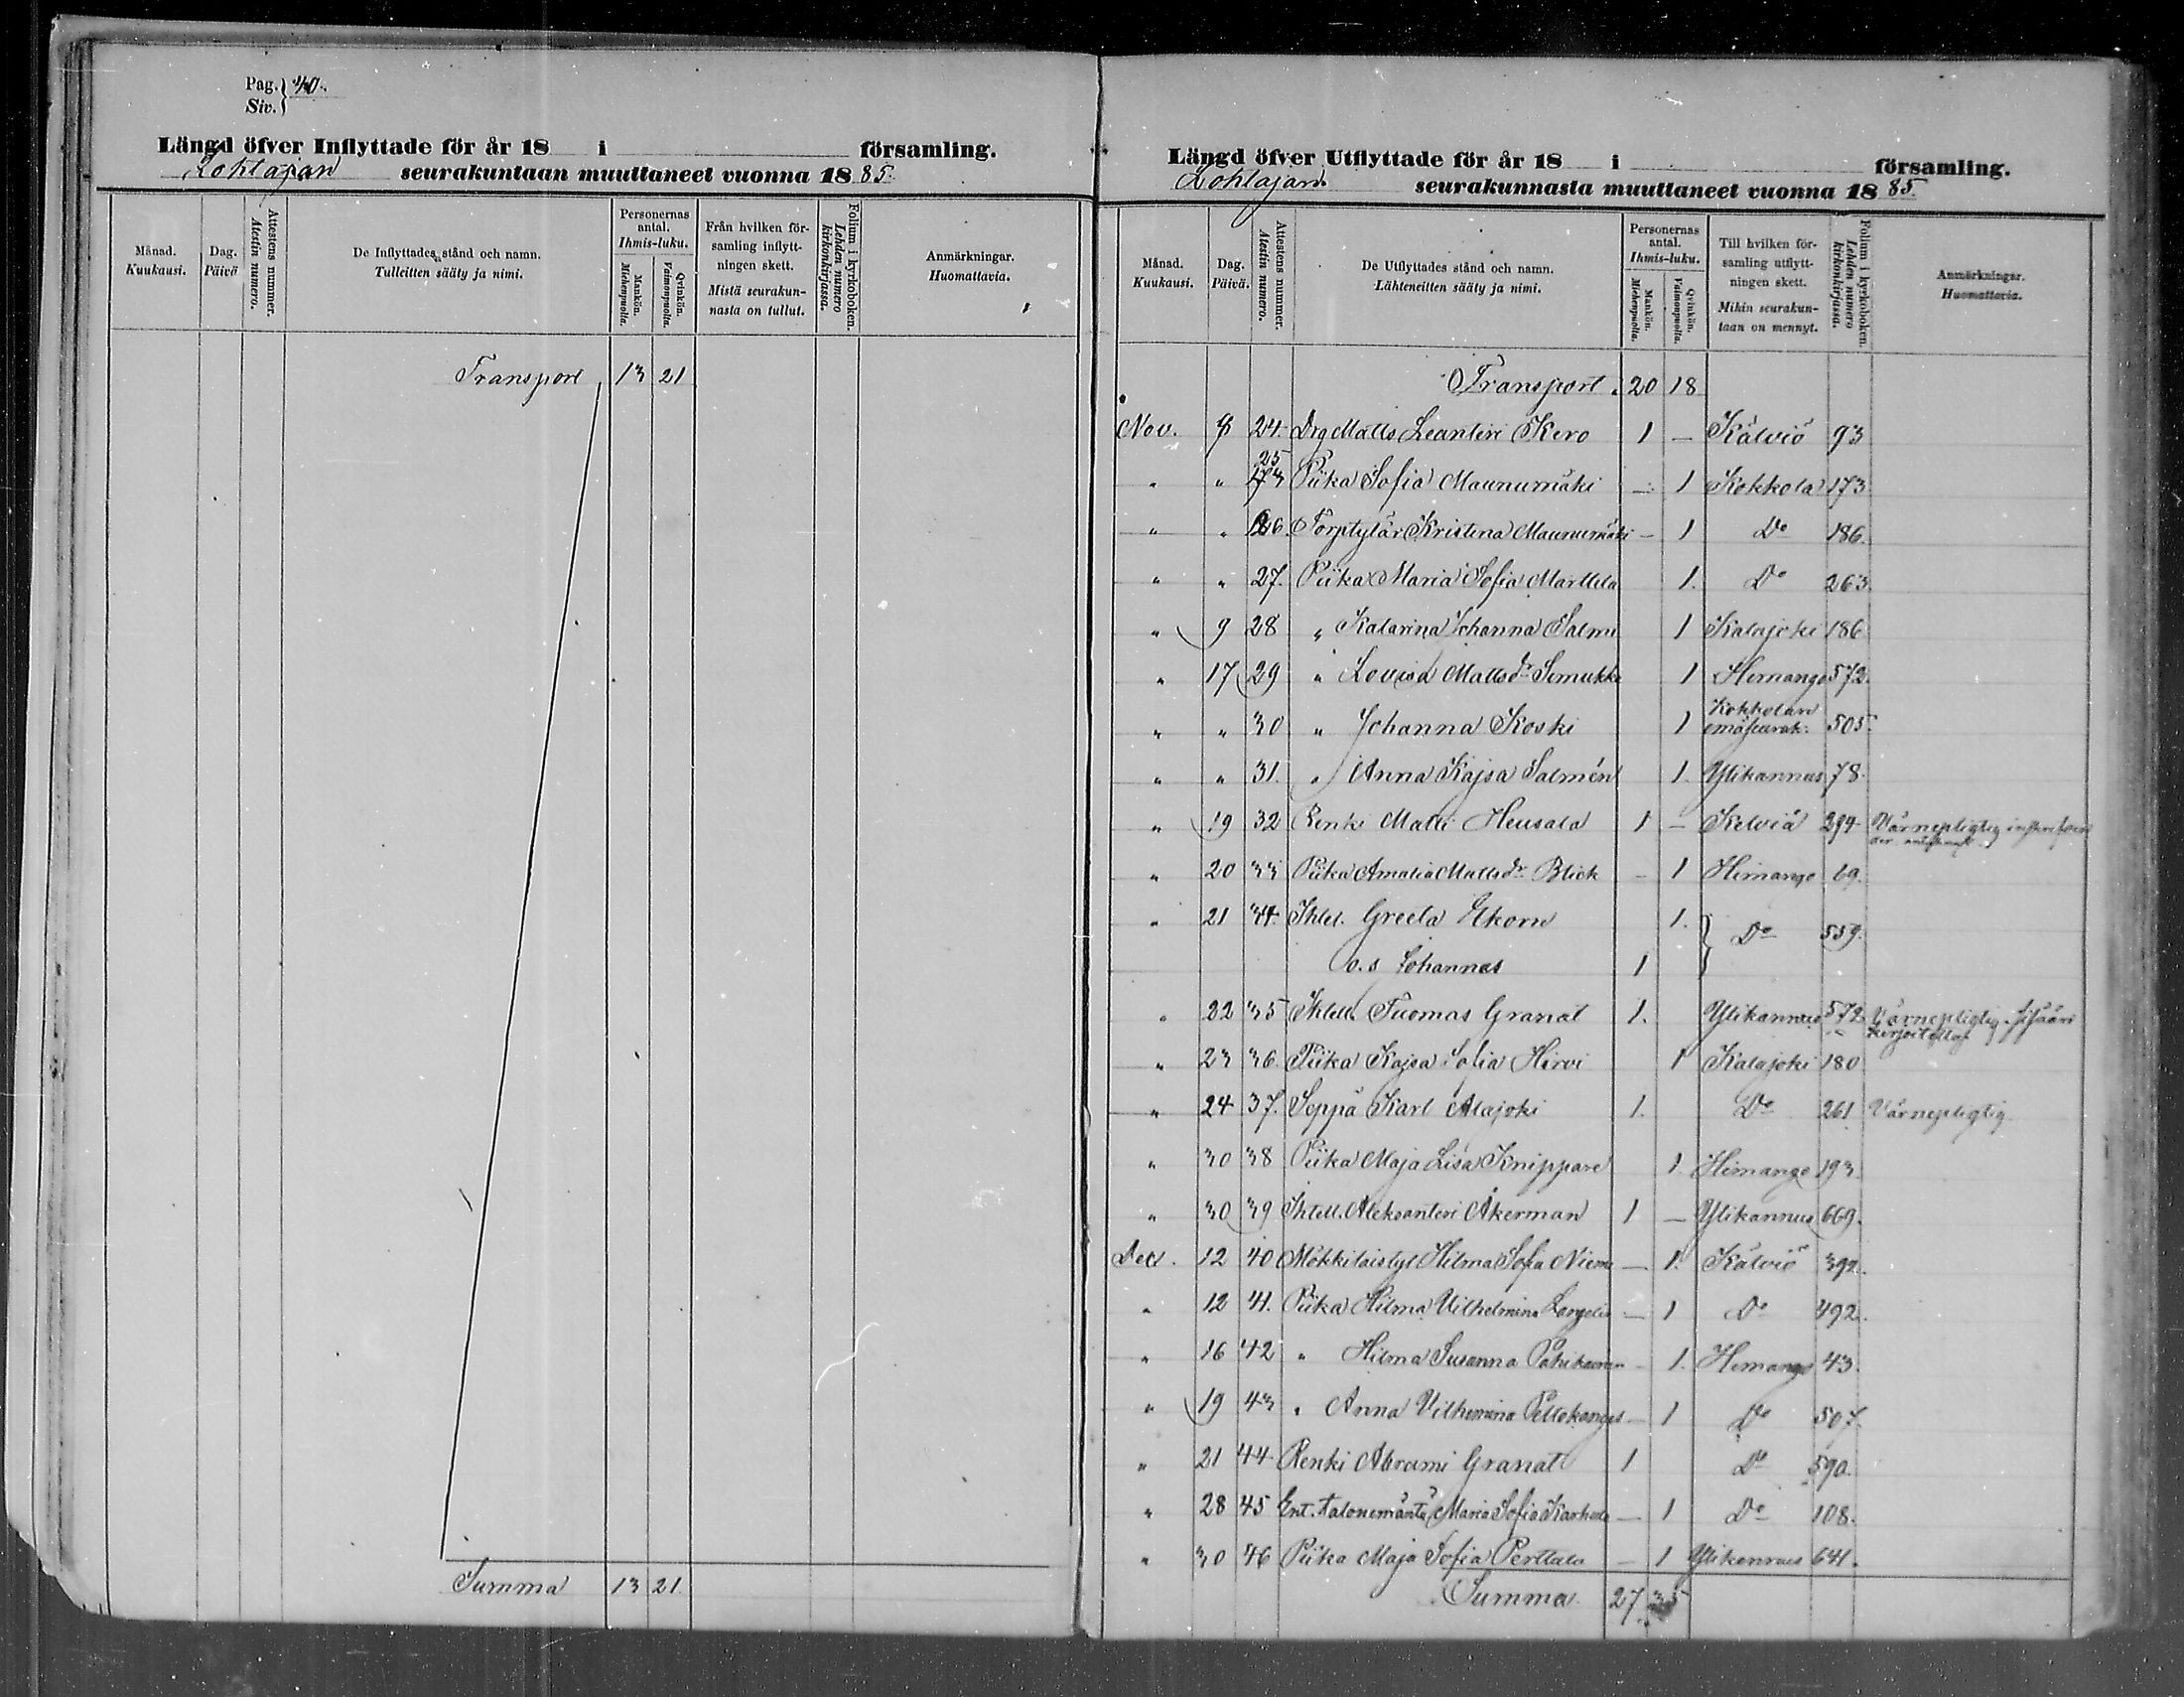 Pag. } 40.
Siv. }
Längd öfver Inflyttade för år 18 i församling.
Lohtajan seurakuntaan muuttaneet vuonna 1885.
Månad. Kuukausi. Dag. Päivä Attestens nummer. Atestin numero. De Inflyttades stånd och namn. Tulleitten sääty ja nimi. Personernas antal. Ihmis-luku. Mankön. Miehenpuolia. Qvinkön. Vaimonpuolia. Från hvilken församling inflyttningen skett. Mistä seurakunnasta on tullut. Folium i kyrkoboken. Lehden numero kirkonkirjassa. Anmärkningar. Huomattavia.
Transport 13 21
Summa 13 21.
Längd öfver Utflyttade för år 18 i församling.
Lohtajan seurakunnasta muuttaneet vuonna 1885.
Månad. Kuukausi. Dag. Päivä. Attestens nummer. Atestin numero. De Utflyttades stånd och namn. Lähteneitten sääty ja nimi. Personernas antal. Ihmis-luku. Mankön. Miehenpuolia. Qvinkön. Vaimonpuolia. Till hvilken församling utflyttningen skett. Mihin seurakuntaan on mennyt. Folium i kyrkoboken. Lehden numero kirkonkirjassa. Anmärkningar. Huomattavia.
Transport. 20 18
Nov. 24. Drg Matts Leanteri Kero 1 – Kälviö 93
" " 25 Piika Sofia Maunumäki – 1 Kokkola 173
" " 26. Torptytär Kristina Maunumäki – 1 Do 186.
" " 27. Piika Maria Sofia Marttila 1. Do 263.
" 9 28 " Katarina Johanna Salmi 1 Kalajoki 186
" 17 29 " Lovisa Mattsdr Simukka 1 Himango 572.
" " 30 " Johanna Koski 1 Kokkolan emäseurak. 505.
" " 31. " Anna Kajsa Salmén 1. Ylikannus 78.
" 19 32 Renki Matti Heusala 1 – Kelviä 294 Värnepligtig
" 20 33 Piika Amalia Mattsdr Blick – 1 Himango 69.
" 21 34. Ihtel. Greeta Ekorn 1. } Do 559.
o.s Johannes 1
" 22 35 Ihtell. Tuomas Granat 1. Ylikannus 572. Värnepligtig
" 23 36. Piika Kajsa Sofia Hirvi 1 Kalajoki 180
" 24 37. Seppä Karl Alajoki 1. Do 261 Värnepligtig
" 30 38 Piika Maja Lisa Knippare 1. Himango 193.
" 30 39 Ihtell. Aleksanteri Åkerman 1 – Ylikannus 669.
Dec. 12 40 Mökkiläistyt Hilma Sofia Niemi – 1. Kälviö 392.
" 12 41. Piika Hilma Vilhelmina – 1 Do 492.
" 16 42 " Hilma Susanna – 1. Himango 43.
" 19 43 " Anna Vilhemina Peltokangas – 1 Do 507.
" 21 44 Renki Abrami Granat 1 Do 590.
" 28 45 Ent. talonemäntä Maria Sofia – 1 Do 108.
" 30 46 Piika Maja Sofia Perttula – 1 Ylikannus 641.
Summa 27. 35